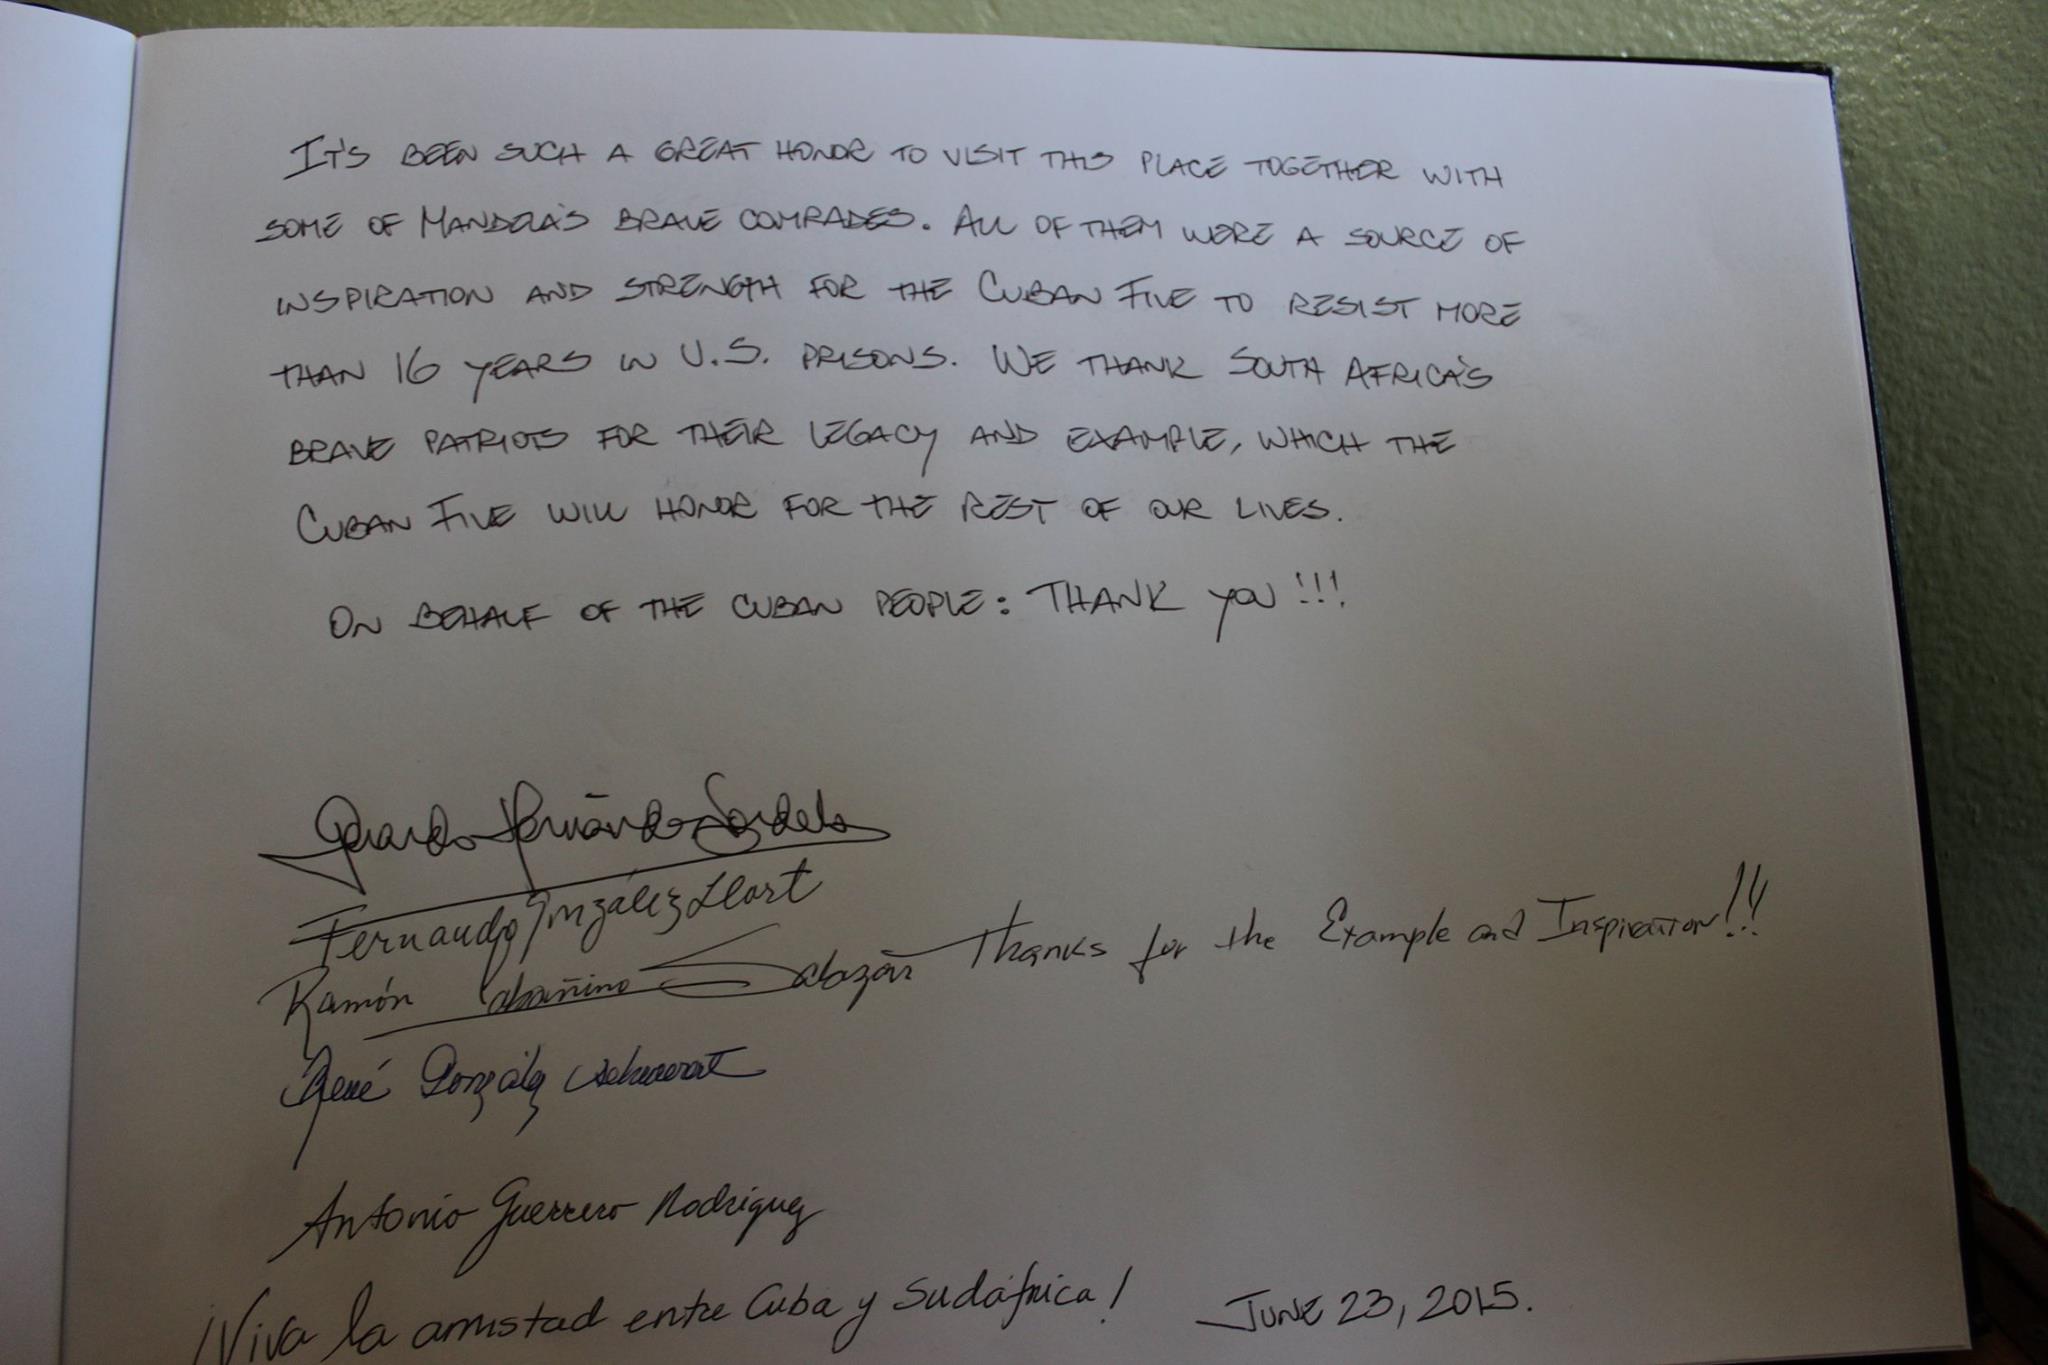 IT'S BEEN SUCH A GREAT HONOR TO VISIT THIS PLACE TOGETHER WITH
SOME OF MANDELA'S BRAVE COMRADES. ALL OF THEM WERE A SOURCE OF
INSPIRATION AND STRENGTH FOR THE CUBAN FIVE TO RESIST MORE
THAN 16 YEARS IN U.S. PRISONS. WE THANK SOUTH AFRICA'S
BRAVE PATRIOTS FOR THEIR LEGACY AND EXAMPLE, WHICH THE
CUBAN FIVE WILL HONOR FOR THE REST OF OUR LIVES.
ON BEHALF OF THE CUBAN PEOPLE: THANK YOU!!!
Gerardo Hernández Nordelo
Fernando González Llort
Ramón Labañino Salazar Thanks for the Example and Inspiration!!!
René González Sehwerert
Antonio Guerrero Rodríguez
¡Viva la amistad entre Cuba y Sudáfrica! JUNE 23, 2015.